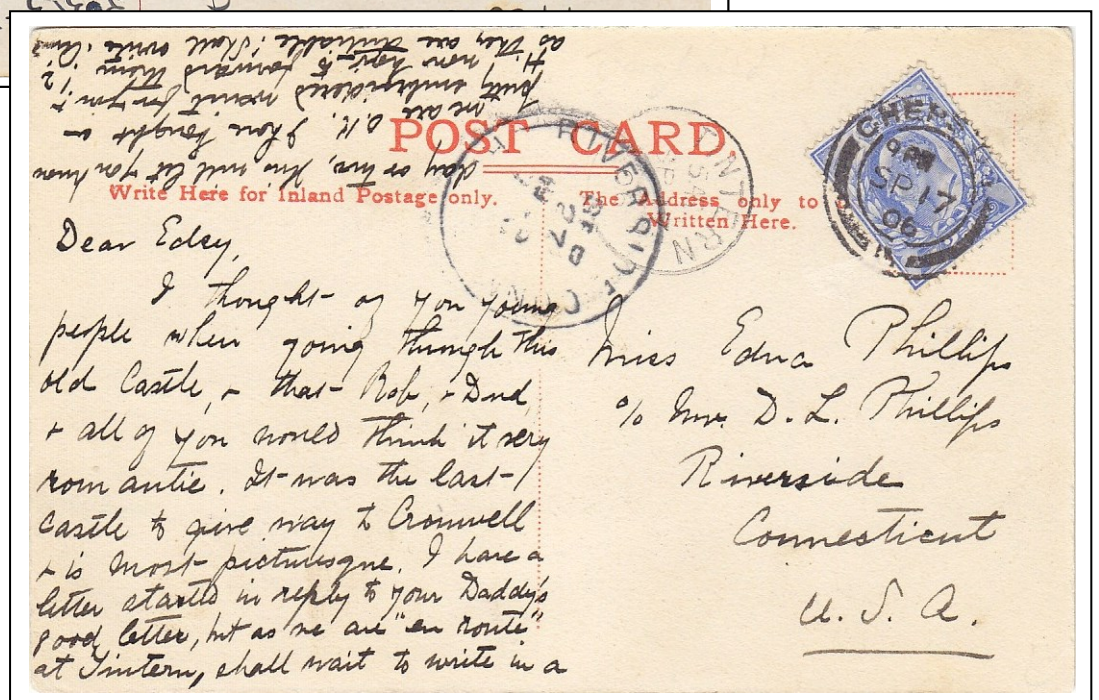 POST CARD.
Write Here for Inland Postage only.
The Address only to be
Written Here.
CHEP
9 PM
SP 17
06
TINTERN
RIVERSIDE
CONN
Dear Edey,
I thought of you young
people when going through this
old Castle, & that Rob, & Dud,
& all of you would think it very
romantic. It was the last
castle to give way to Cromwell
& is most picturesque. I have a
letter started in reply to your Daddy's
good letter, but as we are "en route"
at Tintern, shall wait to write in a
day or two, this will let you know
we are O.K. I have bought a
little embroidered for you &
H. now have to forward them
as they are shall write
Miss Edna Phillips
c/o Mr. D. L. Phillips
Riverside
Connecticut
U. S. A.